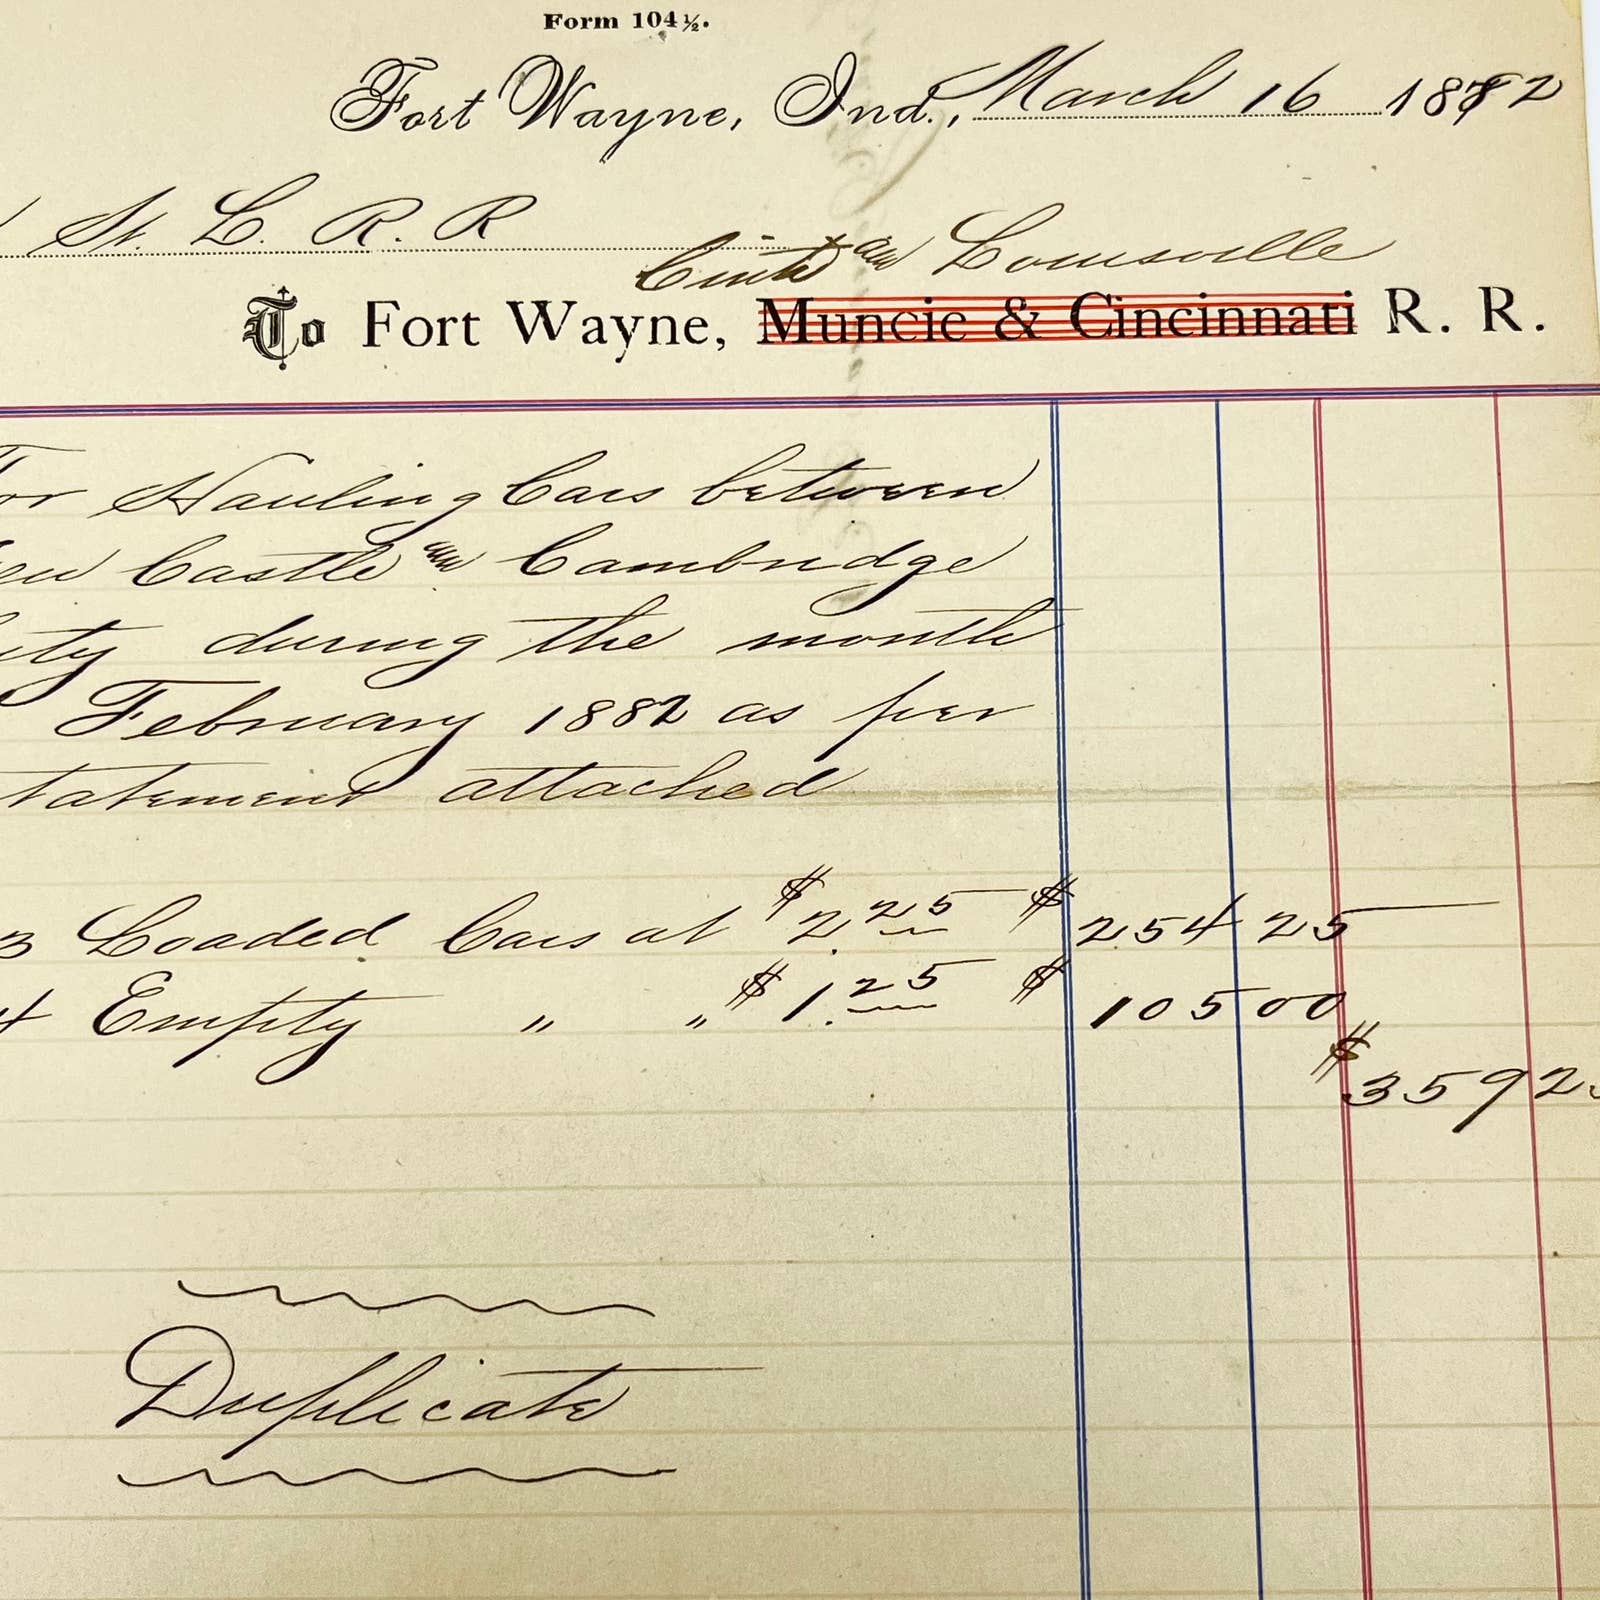 Form 104½.
Fort Wayne, Ind., March 16 1882
St. L. R. R
Cinti and Louisville
To Fort Wayne, Muncie & Cincinnati R. R.
or Hauling Cars between
ew Castle and Cambridge
ity during the month
February 1882 as per
tatement attached
3 Loaded Cars at $2.25 $254 25
4 Empty " " $1.25 $105 00
$359 2
Duplicate